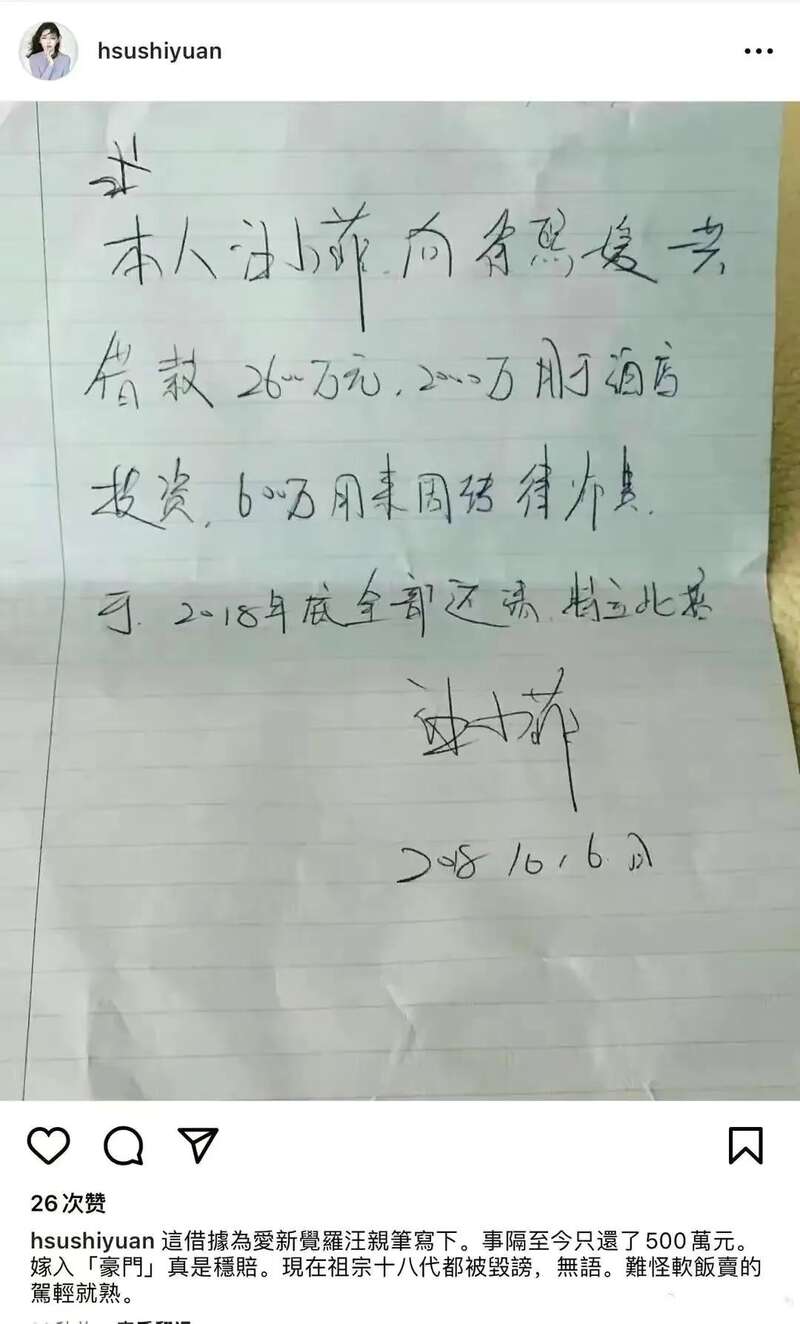 hsushiyuan
本人汪小菲向徐熙媛共
借款2600万元,2000万用于酒店
投资,600万用来周转律师费.
于.2018年底全部还清.特立此据
汪小菲
26次赞
hsushiyuan 這借據為愛新覺羅汪親筆寫下。事隔至今只還了500萬元。
嫁入「豪門」真是穩賠。現在祖宗十八代都被毀謗,無語。難怪軟飯賣的
駕輕就熟。